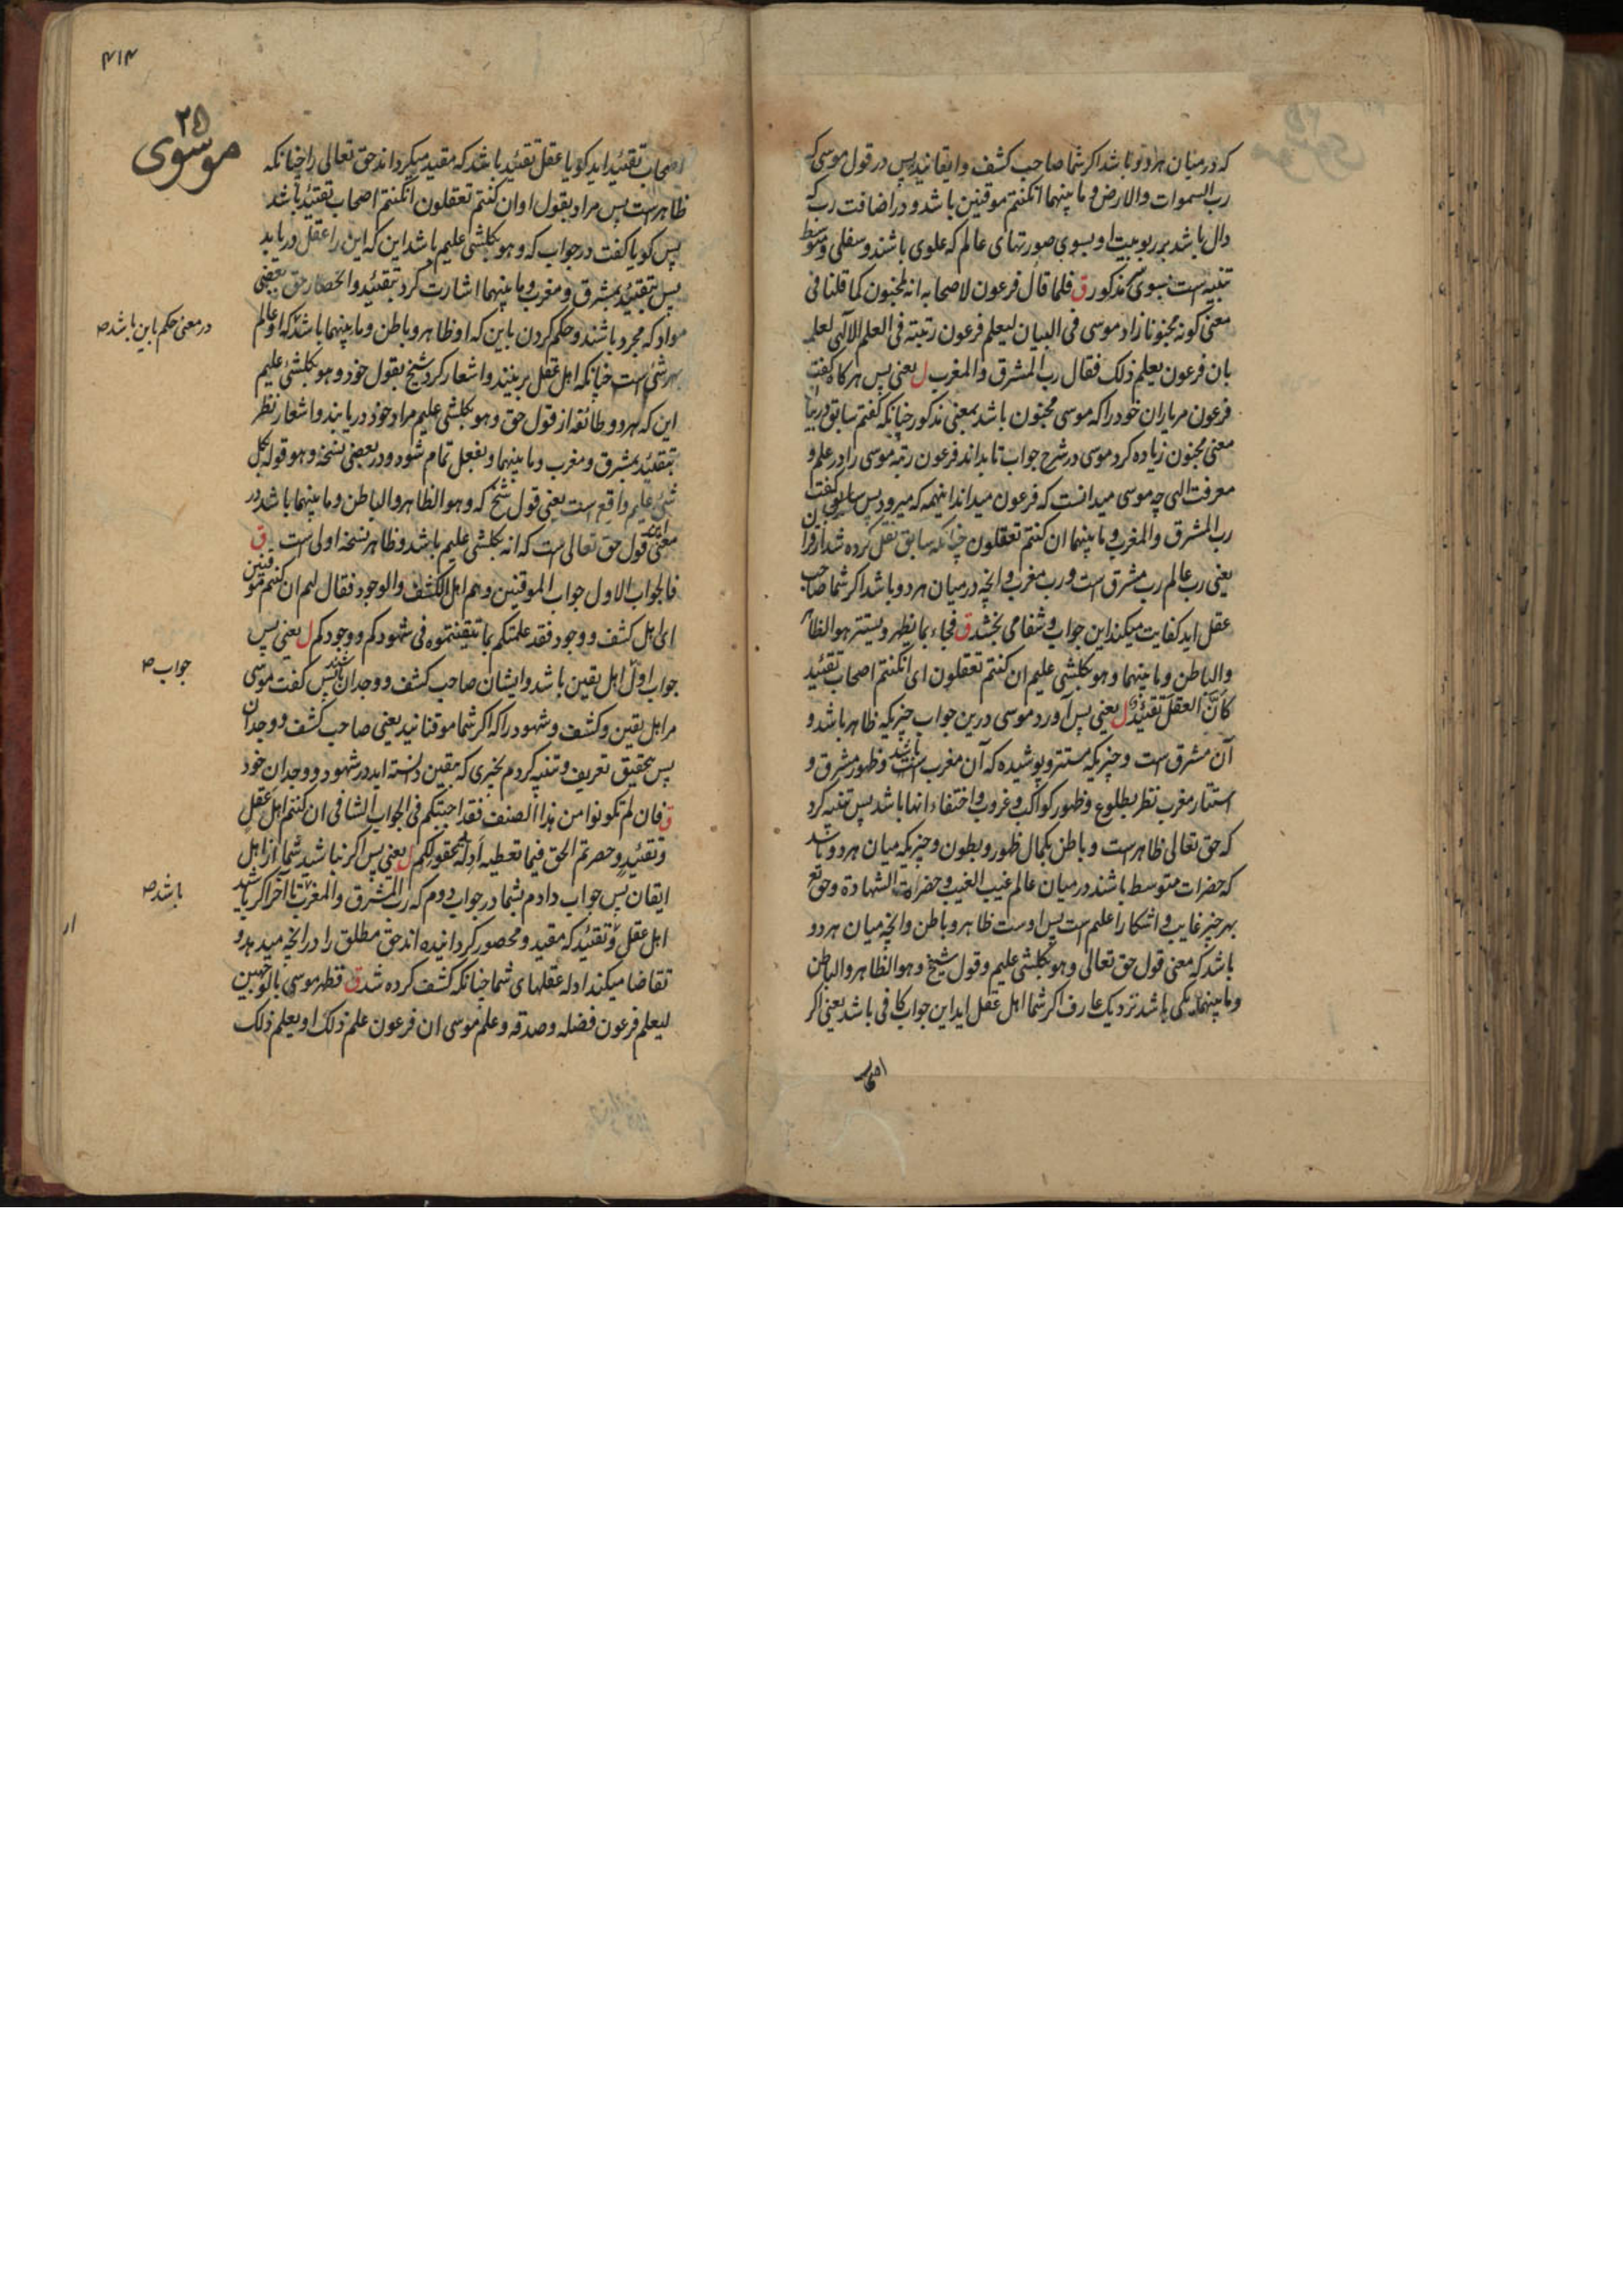 که در میان هر دو باشد اکر شما صاحب کشف و ایقانید پس در قول موسی که
رب السموات والارض و ما بینهما انکنتم موقنین باشد و در اضافت رب که
دال باشد بر ربوبیت او بسوی صورتهای عالم که علوی باشند و سفلی و متوسط
تنبیه است بسوی مذکور ق فلما قال فرعون لاصحابه انه لمجنون کما قلنا فی
معنی کونه مجنونا زاد موسی فی البیان لیعلم فرعون رتبته فی العلم الالهی لعلمه
بان فرعون یعلم ذلک فقال رب المشرق والمغرب ل یعنی پس هرکاه کفت
فرعون مریاران خود را که موسی مجنون باشد بمعنی مذکور چنانکه کفتم سابق در بیان
معنی مجنون زیاده کرد موسی در شرح جواب تا بداند فرعون رتبه موسی را در علم و
معرفت الهی چه موسی میدانست که فرعون میداند اینهمه که میرود پس کفت
رب المشرق والمغرب و ما بینهما ان کنتم تعقلون چنانکه سابق نقل کرده شد
یعنی رب عالم رب مشرق است و رب مغرب و انچه در میان هر دو باشد اکر شما صاحب
عقل اید کفایت میکند این جواب و شفا می بخشد ق فجاء بما یظهر و یستتر هو الظاهر
والباطن و ما بینهما و هو بکلشی علیم ان کنتم تعقلون ای انکنتم اصحاب تقئید
کان العقل تقئید ل یعنی پس آورد موسی درین جواب چیزیکه ظاهر باشد و
آن مشرق است و چیزیکه مستتر و پوشیده که آن مغرب است باشد و ظهور مشرق و
استتار مغرب نظر بطلوع و ظهور کواکب و غروب و اختفاء انها باشد پس تنبیه کرد
که حق تعالی ظاهر است و باطن بکمال ظهور و بطون و چیزیکه میان هر دو باشد
که حضرات متوسط باشند در میان عالم غیب الغیب و حضرات الشهادة و حق تع
بهر چیز غایب و اشکارا علیم است پس اوست ظاهر و باطن و انچه میان هر دو
باشد که معنی قول حق تعالی و هو بکلشی علیم و قول شیخ و هو الظاهر والباطن
و ما بینهما یکی باشد نزدیک عارف اکر شما اهل عقل اید این جواب کافی باشد یعنی اکر
اصحاب
۴۱۴
۲۵
موسوی
اصحاب تقئید اید کویا عقل تقئید باشد که مقید میکرداند حق تعالی را چنانکه
ظاهر است پس مراد بقول او ان کنتم تعقلون انکنتم اصحاب تقئید باشد
پس کویا کفت در جواب که و هو بکلشی علیم باشد این که این را عقل دریابد
پس بتقئید بمشرق و مغرب و ما بینهما اشارت کرد بتقئید و انحصار حق ببعضی
مواد که مجرد باشند و حکم کردن باین که او ظاهر و باطن و ما بینهما باشد که او عالم
بهر شئ است چنانکه اهل عقل برینند و اشعار کرد شیخ بقول خود و هو بکلشئ علیم
این که هر دو طائفه از قول حق و هو بکلشی علیم مراد خود دریابند و اشعار نظر
بتقئید بمشرق و مغرب و ما بینهما و بفعل تمام شود و در بعضی نسخه و هو قوله بکل
شئ علیم واقع است یعنی قول شیخ که و هو الظاهر والباطن و ما بینهما باشد در
معنی قول حق تعالی است که انه بکلشی علیم باشد و ظاهر نسخه اولی است ق
فالجواب الاول جواب الموقنین و هم اهل الکشف والوجود فقال لهم ان کنتم موقنین
ای اهل کشف و وجود فقد علمتکم بما تیقنتموه فی شهودکم و وجودکم ل یعنی پس
جواب اول اهل یقین باشد و ایشان صاحب کشف و وجدان باشند پس کفت موسی
مر اهل یقین و کشف و شهود را که اکر شما موقنانید یعنی صاحب کشف و وجدان
پس بتحقیق تعریف و تنبیه کردم بخبری که بیقین دانسته اید در شهود و وجدان خود
ق فان لم تکونوا من هذا الصنف فقد اجبتکم فی الجواب الشافی ان کنتم اهل عقل
و تقئید و حصرتم الحق فیما تعطیه ادلة عقولکم ل یعنی پس اکر نباشید شما از اهل
ایقان پس جواب دادم بشما در جواب دوم که رب المشرق والمغرب تا آخر اکر باشید
اهل عقل و تقئید که مقید و محصور کردانیده اند حق مطلق را در انچه میدهد و
تقاضا میکند ادله عقلهای شما چنانکه کشف کرده شد ق فظهر موسی بالوجهین
لیعلم فرعون فضله و صدقه و علم موسی ان فرعون علم ذلک او یعلم ذلک
در معنی حکم باین باشد ص
جواب ص
باشد ص